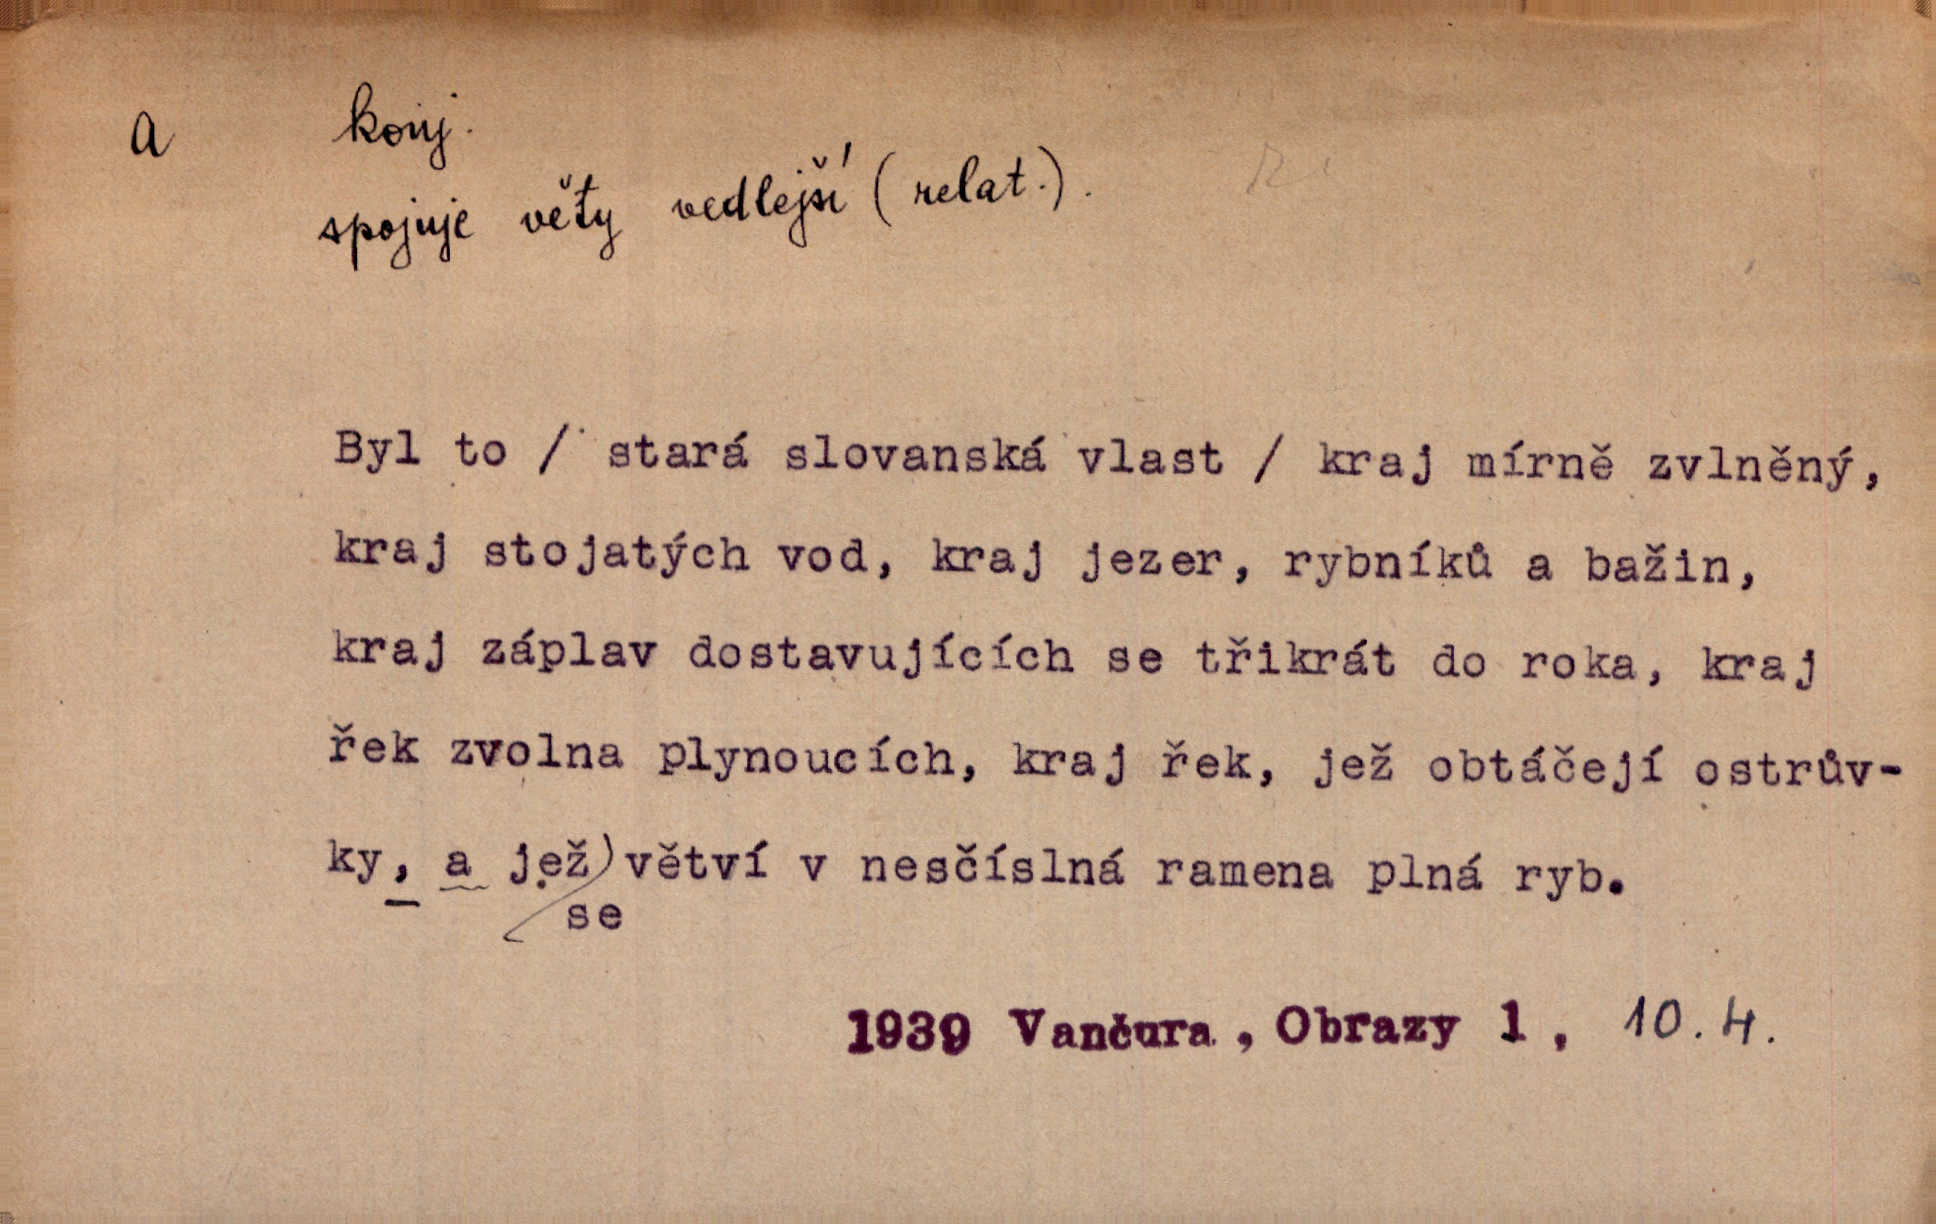 a konj.
spojuje věty vedlejší (relat.).
Byl to / stará slovanská vlast / kraj mírně zvlněný,
kraj stojatých vod, kraj jezer, rybníků a bažin,
kraj záplav dostavujících se třikrát do roka, kraj
řek zvolna plynoucích, kraj řek, jež obtáčejí ostrův-
ky, a jež) větví v nesčíslná ramena plná ryb.
se
1939 Vančura, Obrazy 1, 10.4.